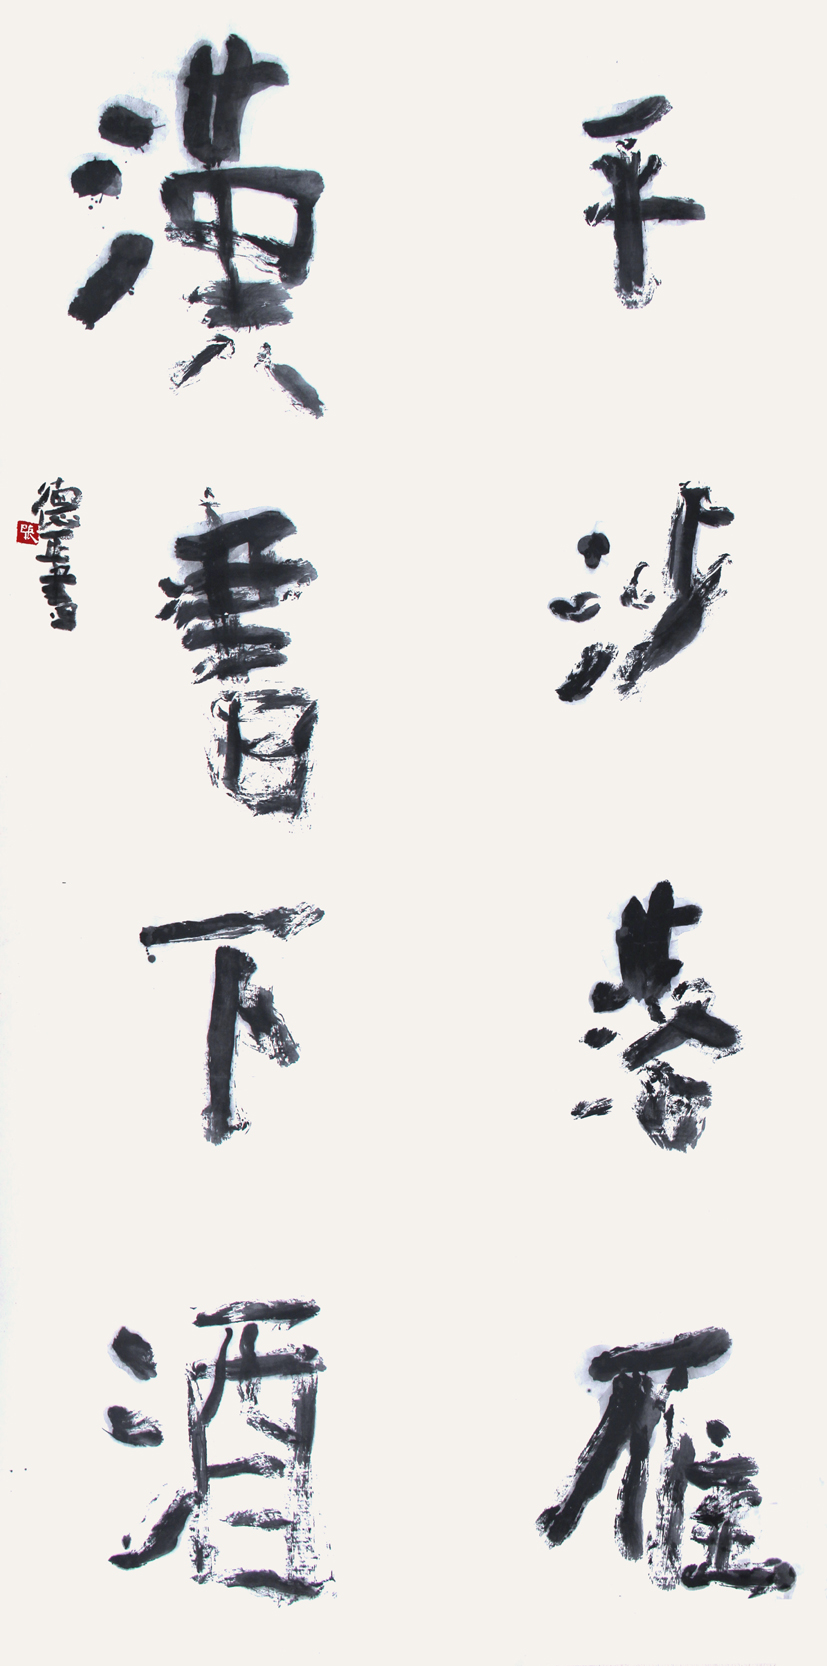 平沙落雁
漢書下酒
德
張